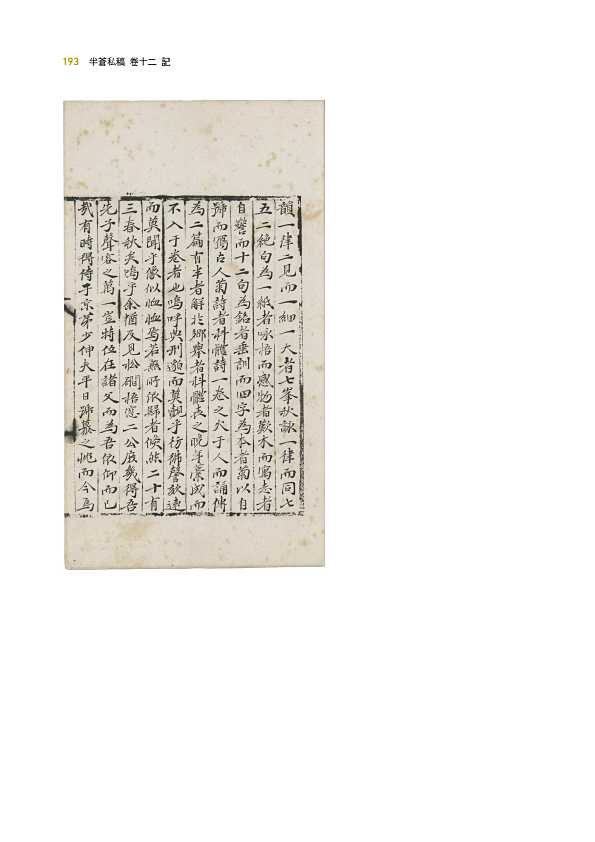 193 半蒼私稿 卷十二 記
韻一律二見而一細一大者七峯秋詠一律而同七
五二絶句為一紙者咏梧而感物者歎木而寫志者
自警而十二句為銘者垂訓而四字為本者菊以自
號而寫古人菊詩者科體詩一卷之矢于人而誦傳
為二篇有半者解於鄉擧者科體表之晩年藁成而
不入于卷者也嗚呼典刑邈而莫覩乎彷彿謦欬遠
而莫聞乎像似恤恤焉若無所依歸者倏然二十有
三春秋矣嗚乎余猶及見松磵梧窓二公庶幾得吾
先子聲容之萬一宣特位在諸父而為吾依仰而已
哉有時得侍于京第少伸夫平日鄉慕之忱而今焉